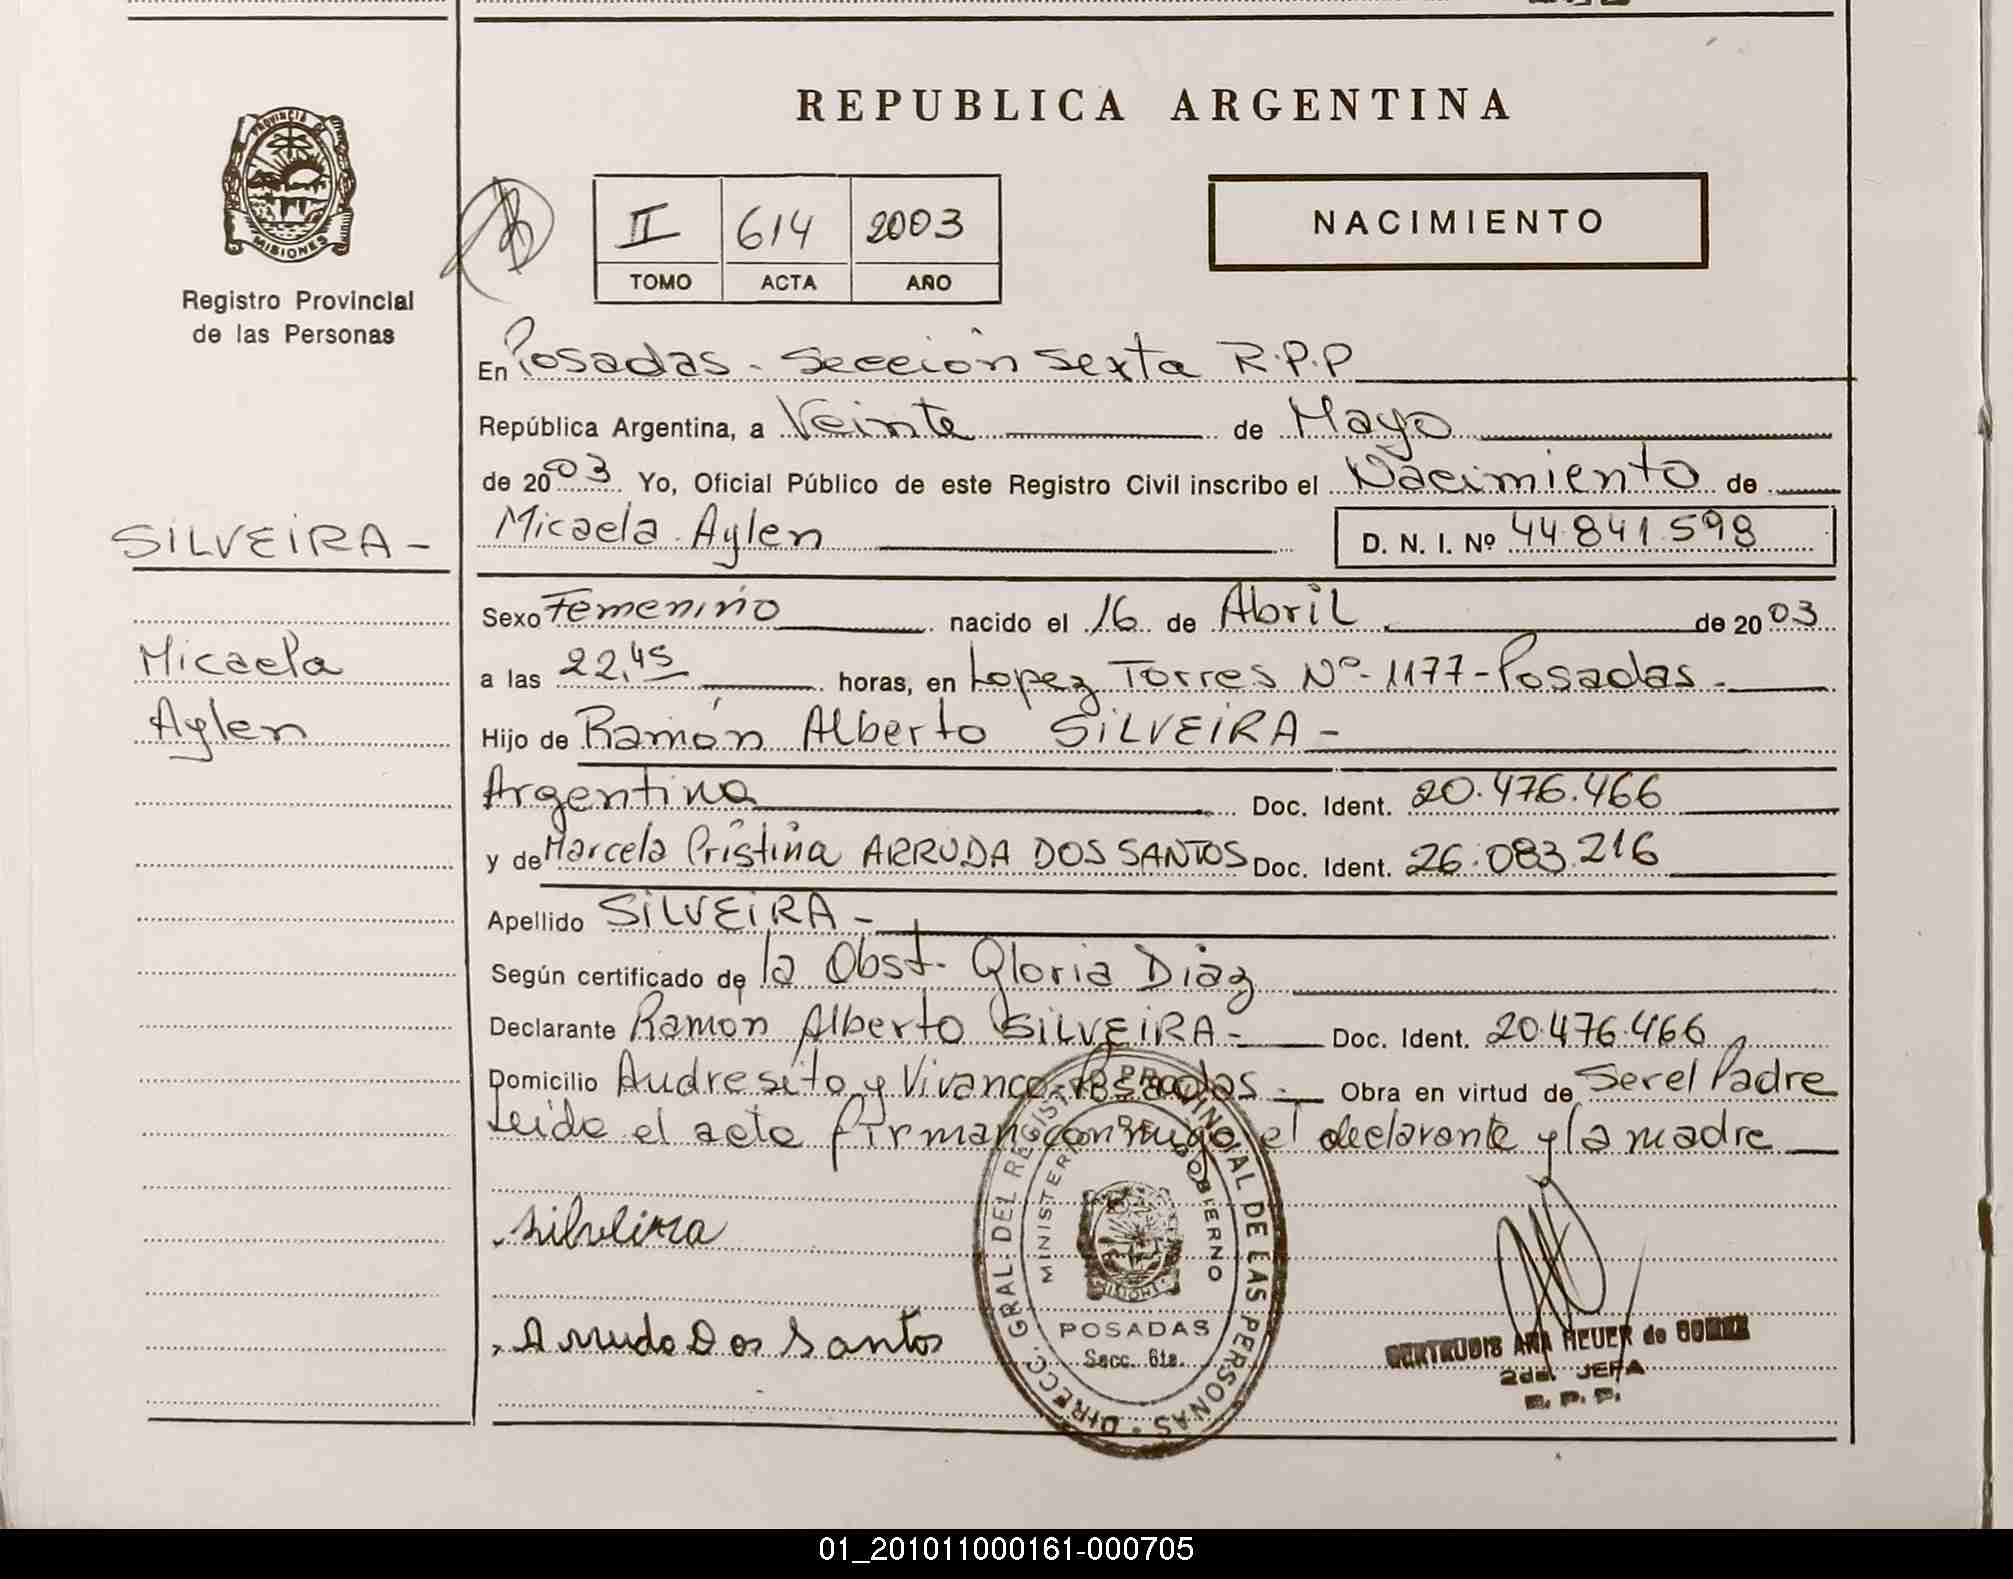 REPUBLICA ARGENTINA
PROVINCIA DE
MISIONES
Registro Provincial
de las Personas
II 614 2003
TOMO ACTA AÑO
NACIMIENTO
En Posadas - Sección Sexta R.P.P
República Argentina, a Veinte de Mayo
de 2003 Yo, Oficial Público de este Registro Civil inscribo el Nacimiento de
SILVEIRA -
Micaela Aylen D. N. I. Nº 44.841.598
Sexo Femenino nacido el 16 de Abril de 2003
Micaela
a las 22,45 horas, en Lopez Torres Nº- 1177 - Posadas -
Aylen
Hijo de Ramón Alberto SILVEIRA -
Argentina Doc. Ident. 20.476.466
y de Marcela Cristina ARRUDA DOS SANTOS Doc. Ident. 26.083.216
Apellido SILVEIRA -
Según certificado de la Obst. Gloria Diaz
Declarante Ramon Alberto SILVEIRA - Doc. Ident. 20.476.466
Domicilio Andresito y Vivanco - Posadas - Obra en virtud de Ser el Padre
Leido el acta firman conmigo el declarante y la madre
Silveira
Arruda Dos Santos
DIRECC. GRAL. DEL REGISTRO PROVINCIAL DE LAS PERSONAS
MINISTERIO DE GOBIERNO
MISIONES
POSADAS
Secc. 6ta.
GERTRUDIS ANA HEUER de GOMEZ
2da. JEFA
R. P. P.
01_201011000161-000705